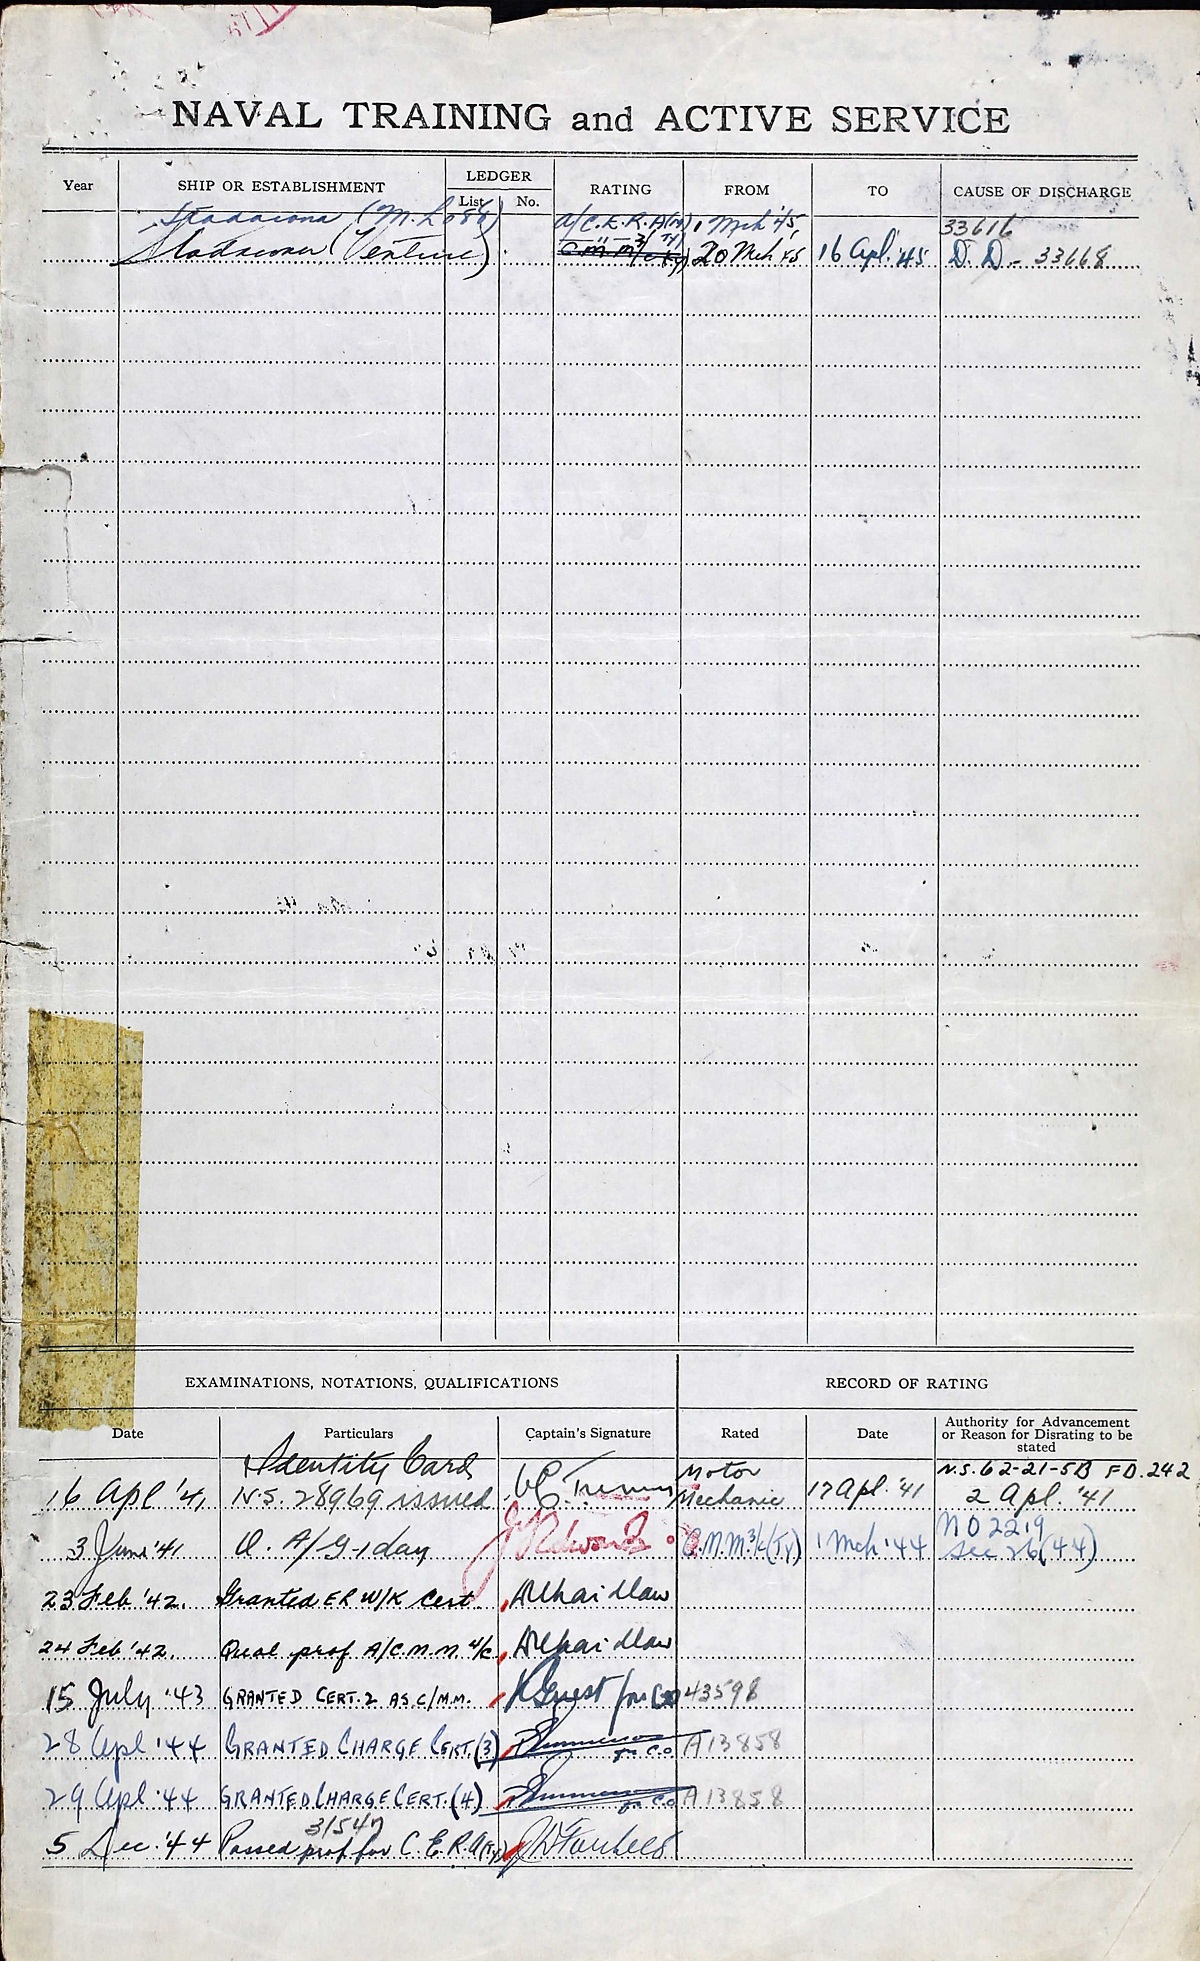 NAVAL TRAINING and ACTIVE SERVICE
Year SHIP OR ESTABLISHMENT LEDGER RATING FROM TO CAUSE OF DISCHARGE
List No.
Stadacona (M.L 088) A/C.E.R.A(Ty) 1 Mch '45 33616
Stadacona (Venture) 20 Mch '45 16 Apl. '45 D.D - 33668
EXAMINATIONS, NOTATIONS, QUALIFICATIONS RECORD OF RATING
Date Particulars Captain's Signature Rated Date Authority for Advancement or Reason for Disrating to be stated
Identity Card Motor N.S. 62-21-5B FD.242
16 Apl '41 N.S. 28969 issued Mechanic 17 Apl. '41 2 Apl. '41
3 June '41 Q. A/G-1 day C.M.M.3/c(Ty) 1 Mch '44 NO 2219
Sec 26(44)
23 Feb '42. Granted ER W/K Cert.
24 Feb '42. Qual prof A/C.M.M. 4/c
15 July '43 GRANTED CERT. 2 AS C/M.M. K Guest for CO 43598
28 Apl '44 GRANTED CHARGE CERT. (3) for C.O. A13858
29 Apl '44 GRANTED CHARGE CERT. (4) for C.O A13858
31547
5 Dec. '44 Passed prof for C.E.R.A(Ty)